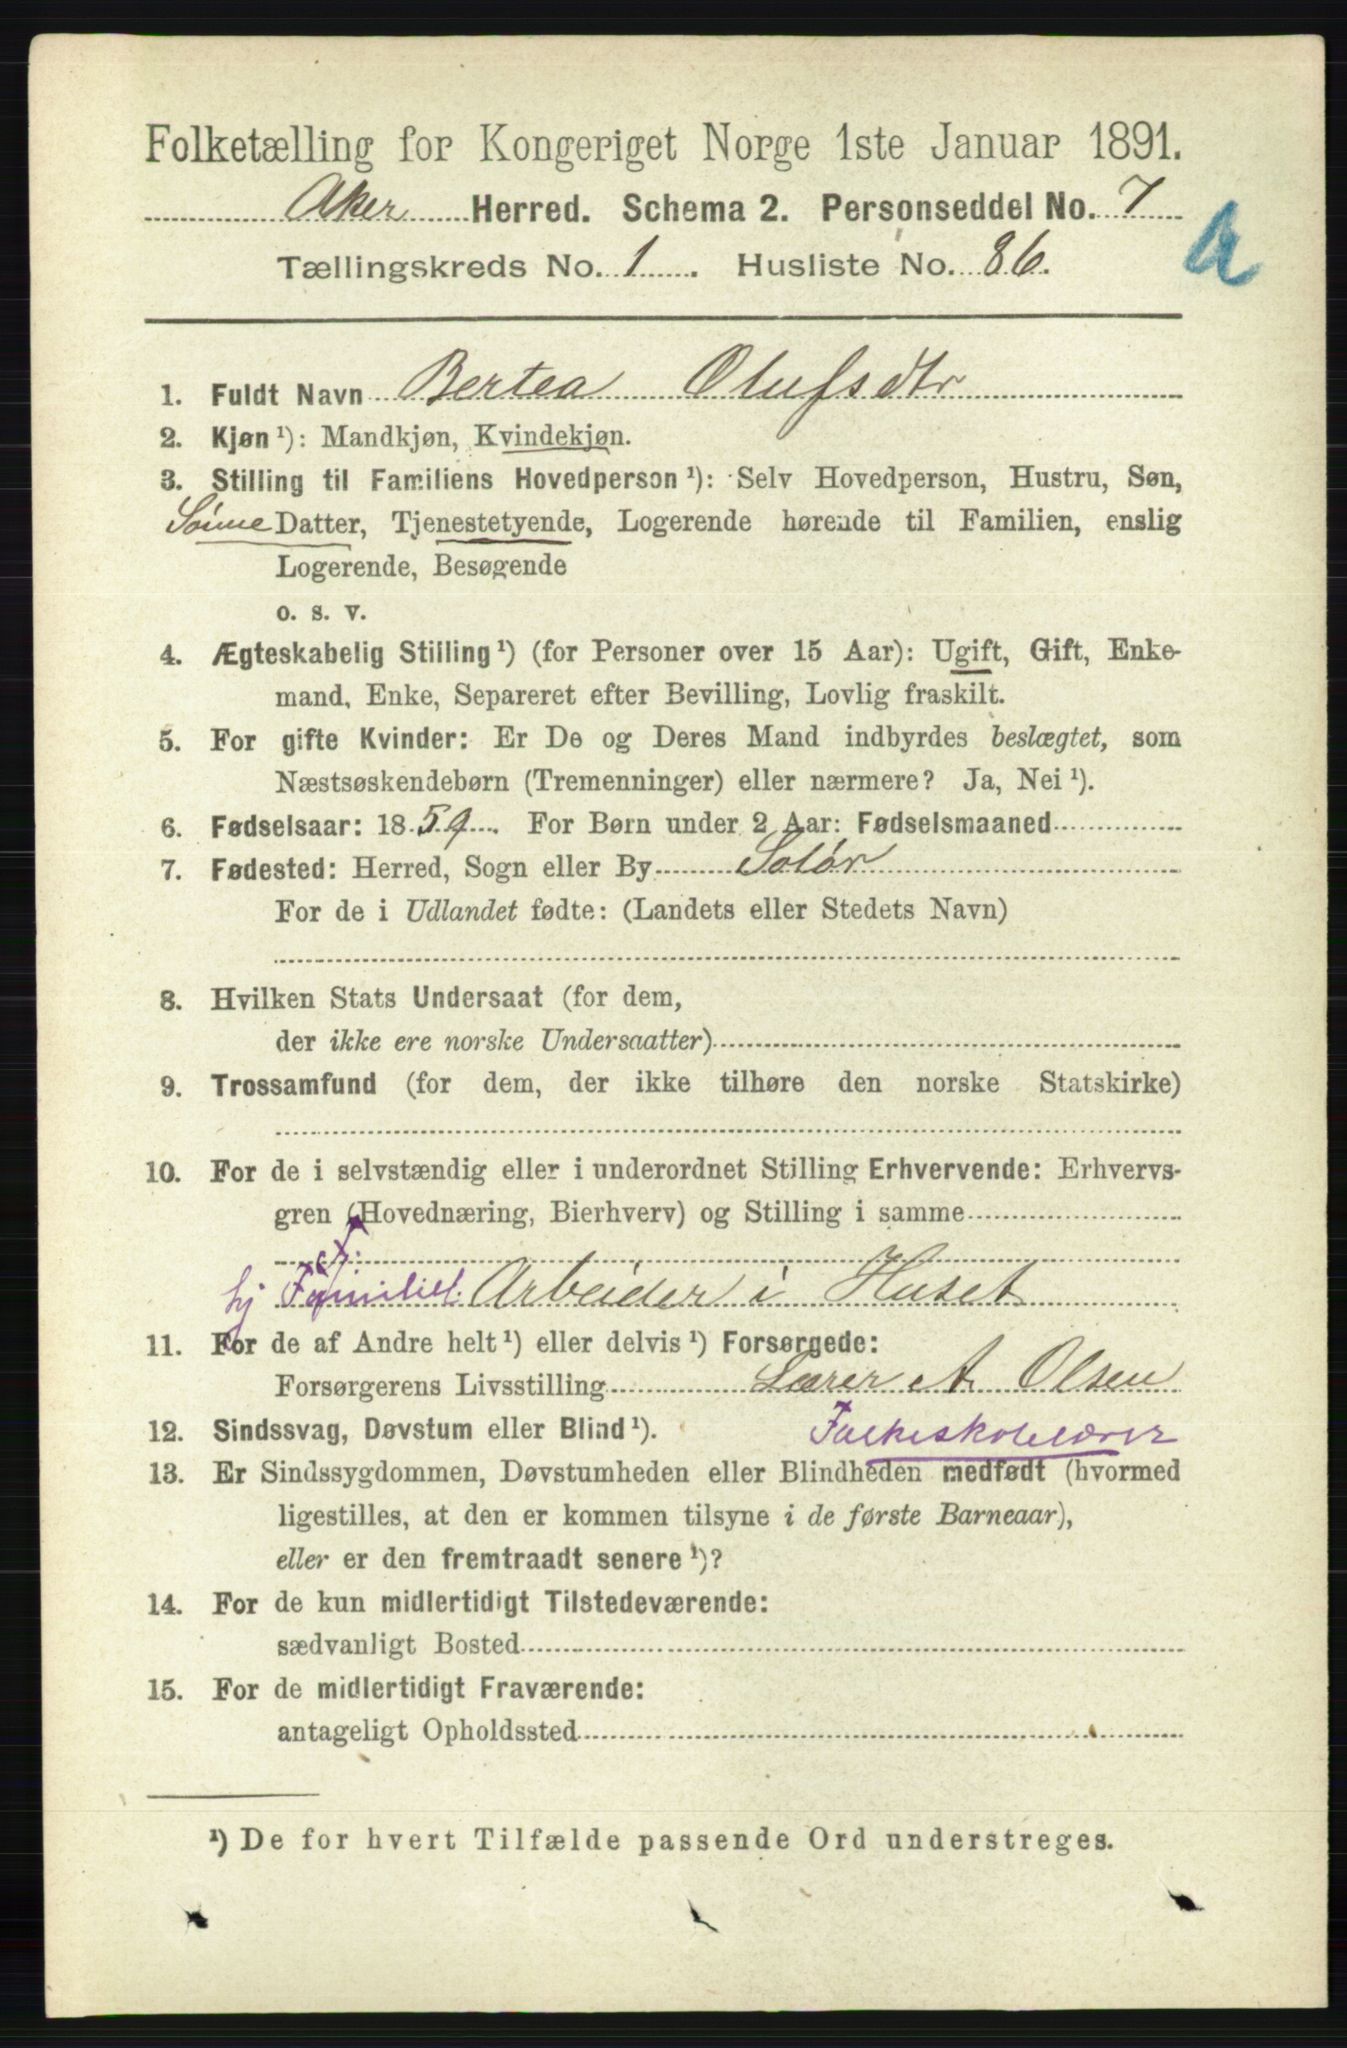 Folketælling for Kongeriget Norge 1ste Januar 1891.
Aker Herred. Schema 2. Personseddel No. 7
Tællingskreds No. 1. Husliste No. 86.
A
1. Fuldt Navn Bertea Olufsdtr
2. Kjøn ¹): Mandkjøn, Kvindekjøn.
3. Stilling til Familiens Hovedperson ¹): Selv Hovedperson, Hustru, Søn,
Sønne Datter, Tjenestetyende, Logerende hørende til Familien, enslig
Logerende, Besøgende
o. s. v.
4. Ægteskabelig Stilling ¹) (for Personer over 15 Aar): Ugift, Gift, Enke-
mand, Enke, Separeret efter Bevilling, Lovlig fraskilt.
5. For gifte Kvinder: Er De og Deres Mand indbyrdes beslægtet, som
Næstsøskendebørn (Tremenninger) eller nærmere? Ja, Nei ¹).
6. Fødselsaar: 1859. For Børn under 2 Aar: Fødselsmaaned
7. Fødested: Herred, Sogn eller By Solør
For de i Udlandet fødte: (Landets eller Stedets Navn)
8. Hvilken Stats Undersaat (for dem,
der ikke ere norske Undersaatter)
9. Trossamfund (for dem, der ikke tilhøre den norske Statskirke)
10. For de i selvstændig eller i underordnet Stilling Erhvervende: Erhvervs-
gren (Hovednæring, Bierhverv) og Stilling i samme
hj Familiel. Arbeider i Huset
11. For de af Andre helt ¹) eller delvis ¹) Forsørgede:
Forsørgerens Livsstilling Lærer A Olsen
12. Sindssvag, Døvstum eller Blind ¹). Folkeskolelærer
13. Er Sindssygdommen, Døvstumheden eller Blindheden medfødt (hvormed
ligestilles, at den er kommen tilsyne i de første Barneaar),
eller er den fremtraadt senere ¹)?
14. For de kun midlertidigt Tilstedeværende:
sædvanligt Bosted
15. For de midlertidigt Fraværende:
antageligt Opholdssted
¹) De for hvert Tilfælde passende Ord understreges.